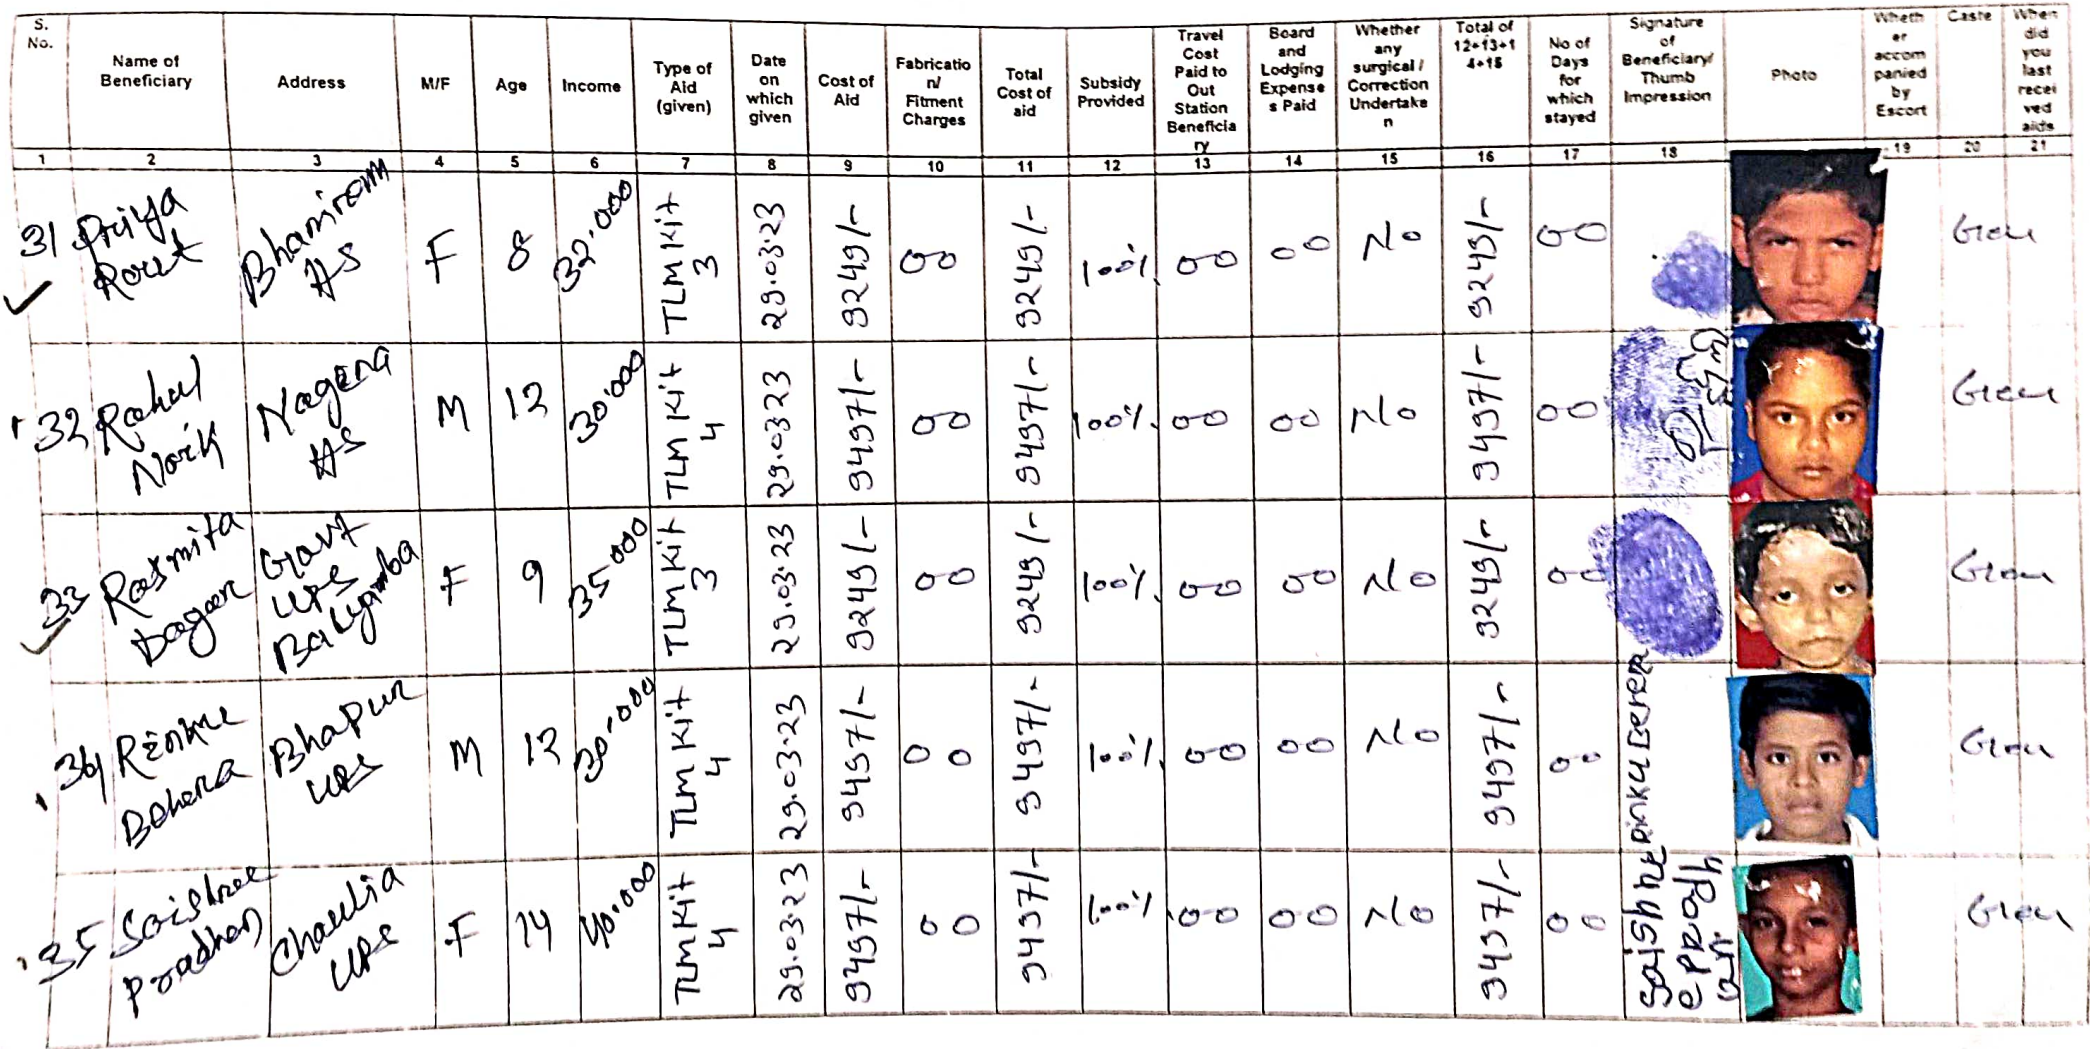 S. No.
Name of Beneficiary
Address
M/F
Age
Income
Type of Aid (given)
Date on which given
Cost of Aid
Fabricatio n/ Fitment Charges
Total Cost of aid
Subsidy Provided
Travel Cost Paid to Out Station Beneficia ry
Board and Lodging Expense s Paid
Whether any surgical / Correction Undertake n
Total of 12+13+1 4+15
No of Days for which stayed
Signature of Beneficiary/ Thumb Impression
Photo
Wheth er accom panied by Escort
Caste
When did you last recei ved aids
1 2 3 4 5 6 7 8 9 10 11 12 13 14 15 16 17 18 19 20 21
31 Priya Rout Bhaniram HS F 8 32.000 TLM Kit 3 29.03.23 9249/- 00 9249/- 100% 00 00 No 9249/- 00 Gen
32 Rahul Naik Nagena HS M 12 30.000 TLM Kit 4 29.03.23 9497/- 00 9497/- 100% 00 00 No 9497/- 00 Gen
33 Rasmita Govt UPS F 9 35000 TLM Kit 3 29.03.23 9249/- 00 9249/- 100% 00 00 No 9249/- 00 Gen
34 Rinku Behera Bhapur UPS M 12 30.000 TLM Kit 4 29.03.23 9497/- 00 9497/- 100% 00 00 No 9497/- 00 Gen
35 Saishree Pradhan Chaulia UPS F 14 40.000 TLM Kit 4 29.03.23 9497/- 00 9497/- 100% 00 00 No 9497/- 00 Saishree Pradhan Gen